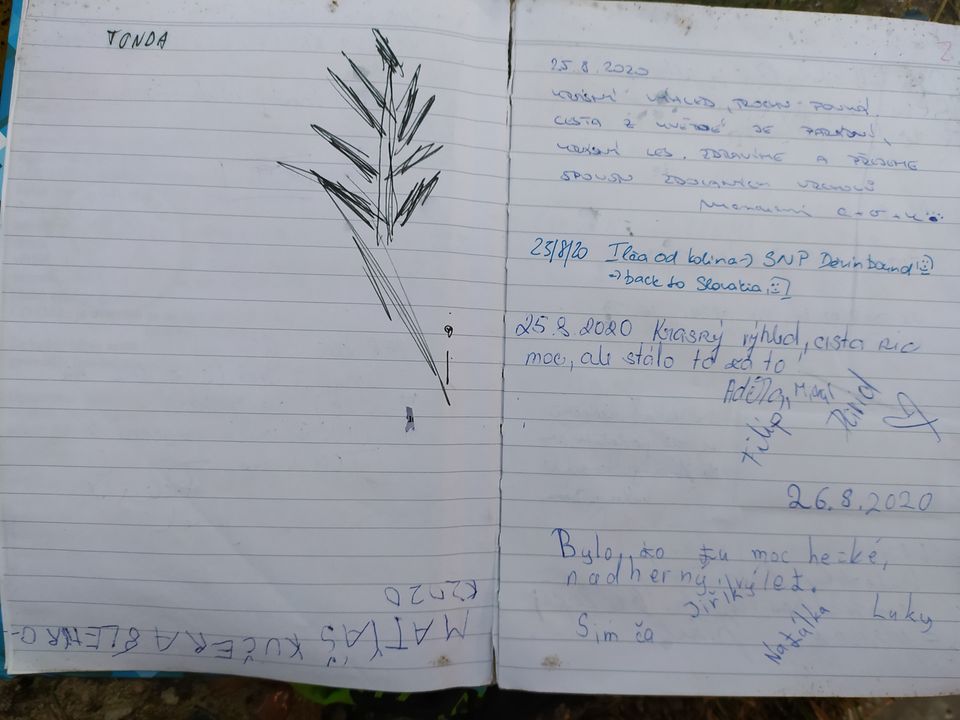 TONDA
MATYÁŠ KUČERA
2.
25.8.2020
KRÁSNÝ VÝHLED, TROCHU FOUKÁ.
CESTA Z JE PARÁDNÍ,
KRÁSNÝ LES. ZDRAVÍME A PŘEJEME
SPOUSTU ZDOLANÝCH VRCHOLŮ
25/8/20 od Kolina → SNP Devin bound
→ back to Slovakia
25.8.2020 Krásný výhled, cesta nic
moc, ale stálo to za to
Adéla,
Filip
David
26.8.2020
Bylo to tu moc hezké,
nadherný výlet.
Jiřík
Luky
Simča
Natálka